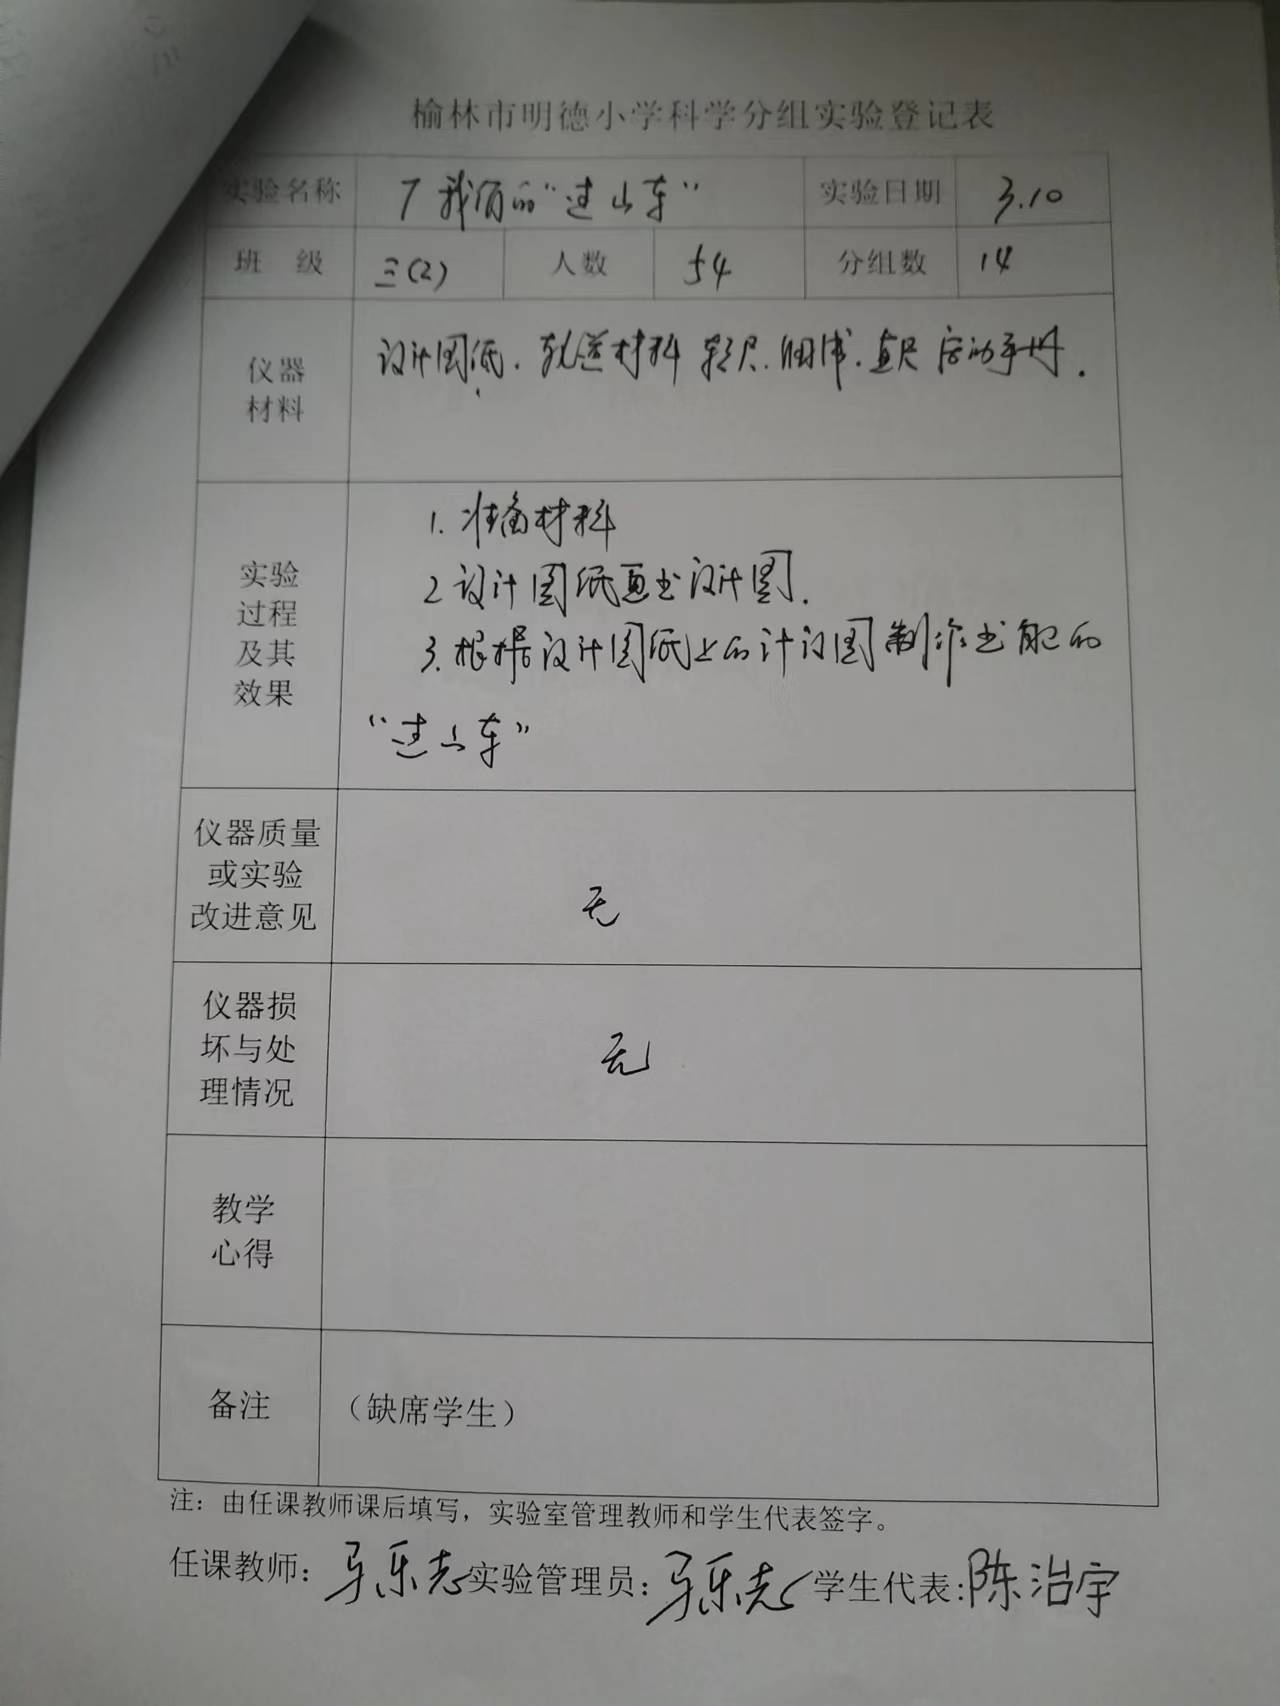 榆林市明德小学科学分组实验登记表
实验名称 7 我们的“过山车” 实验日期 3.10
班 级 三(2) 人数 54 分组数 14
仪器
材料
设计图纸、轨道材料 软尺、胶带、直尺 活动手册.
实验
过程
及其
效果
1. 准备材料
2 设计图纸画出设计图.
3. 根据设计图纸上的计设图制作出自己的
“过山车”
仪器质量
或实验
改进意见
无
仪器损
坏与处
理情况
无
教学
心得
备注 （缺席学生）
注：由任课教师课后填写，实验室管理教师和学生代表签字。
任课教师：马乐志 实验管理员：马乐志 学生代表：陈治宇